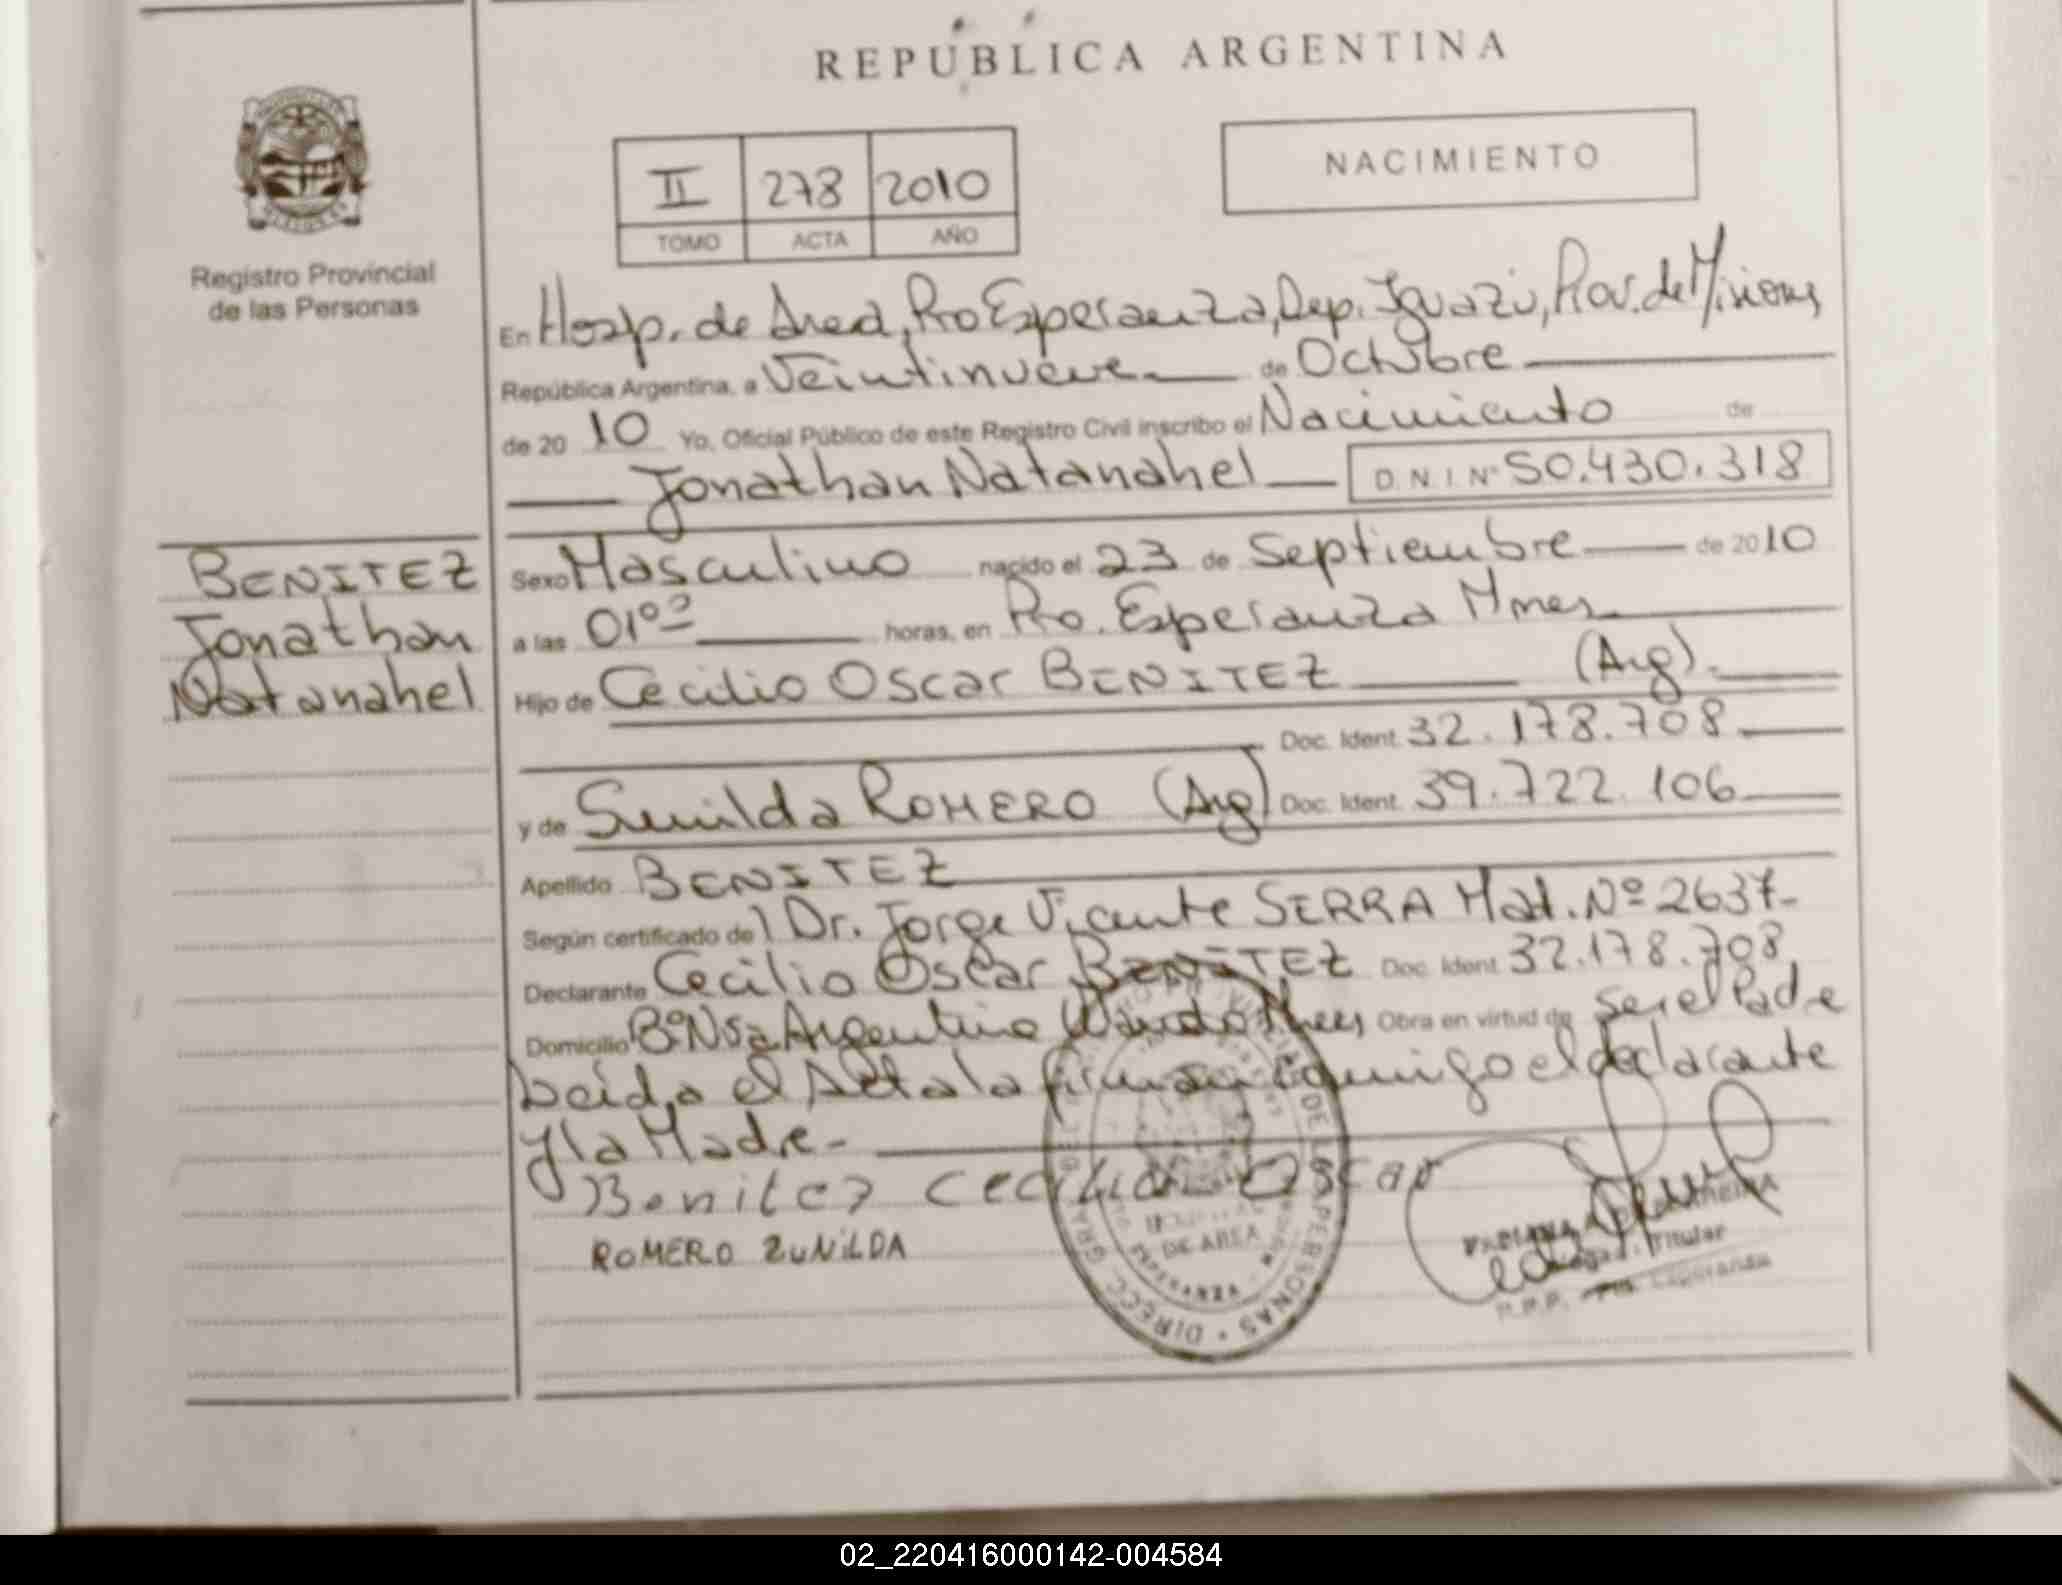 REPÚBLICA ARGENTINA
II 278 2010
TOMO ACTA AÑO
NACIMIENTO
Registro Provincial
de las Personas
En Hosp. de Area, Pto Esperanza, Dep. Iguazú, Prov. de Misiones,
República Argentina, a Veintinueve de Octubre
de 20 10 Yo, Oficial Público de este Registro Civil inscribo el Nacimiento de
Jonathan Natanahel D.N.I. Nº 50.430.318
BENITEZ
Jonathan
Natanahel
Sexo Masculino nacido el 23 de Septiembre de 2010
a las 01ºº horas, en Pto. Esperanza Mnes.
Hijo de Cecilio Oscar BENITEZ (Arg).
Doc. Ident. 32.178.708
y de Sunilda ROMERO (Arg) Doc. Ident. 39.722.106
Apellido BENITEZ
Según certificado del Dr. Jorge Vicente SERRA Mat. Nº 2637-
Declarante Cecilio Oscar BENITEZ Doc. Ident. 32.178.708
Domicilio Bº Nva Argentina Wanda Mnes, Obra en virtud de ser el Padre
Leída el Acta la firman conmigo el declarante
y la Madre-
Benitez Cecilio Oscar
ROMERO ZUNILDA
DE AREA
Titular
R.P.P. Pto. Esperanza
02_220416000142-004584